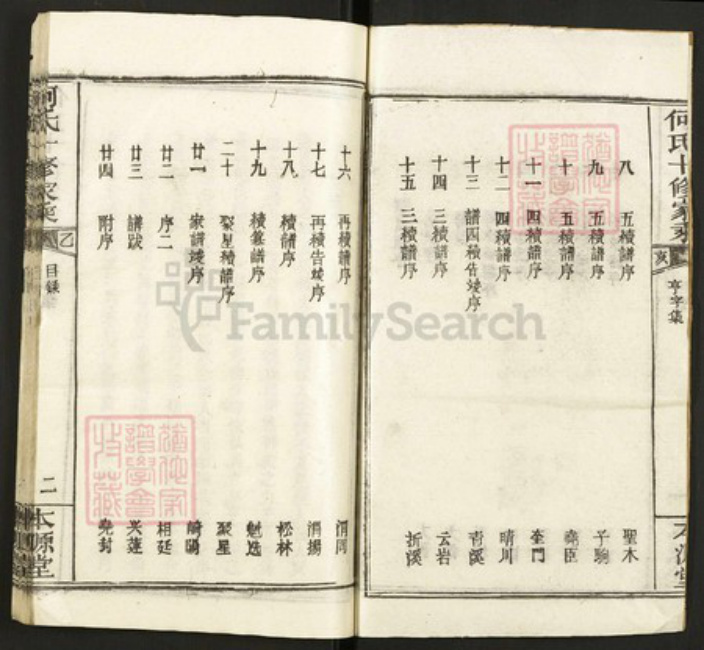 何氏十修家乘
亥
亨字集
八 五續譜序 聖木
九 五續譜序 子駒
十 五續譜序 堯臣
十一 四續譜序 奎門
十二 四續譜序 晴川
十三 譜四續告竣序 青溪
十四 三續譜序 云岩
十五 三續譜序 折溪
十六 再續譜序
十七 再續告竣序
十八 續譜序 松林
十九 續義譜序 魁选
二十 聚星續譜序 聚星
廿一 家譜竣序
廿二 序二 相廷
廿三 譜跋
廿四 附序 堯封
何氏十修家乘
乙
目錄
二
本源堂
FamilySearch